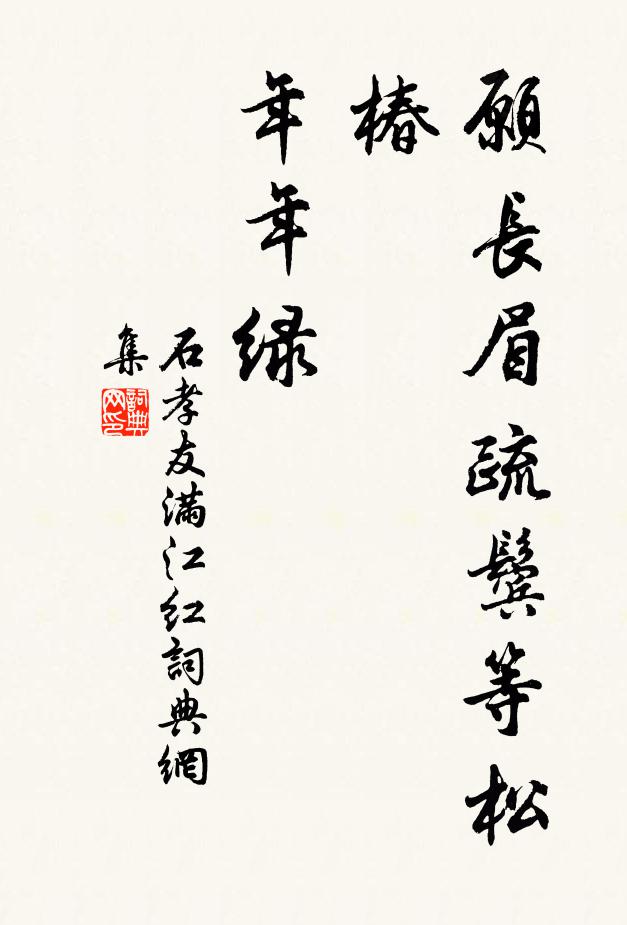 願長眉疏鬢等松
椿
年年緑
石孝友滿江紅詞典網
集
詞典
网印